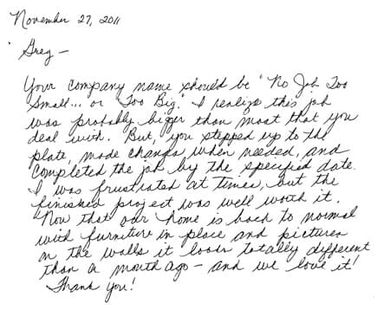 November 27, 2011
Greg —
Your company name should be "No Job Too
Small... or Too Big." I realize this job
was probably bigger than most that you
deal with. But, you stepped up to the
plate, made changes when needed, and
completed the job by the specified date.
I was frustrated at times, but the
finished project was well worth it.
Now that our home is back to normal
with furniture in place and pictures
on the walls it looks totally different
than a month ago — and we love it!
Thank you!